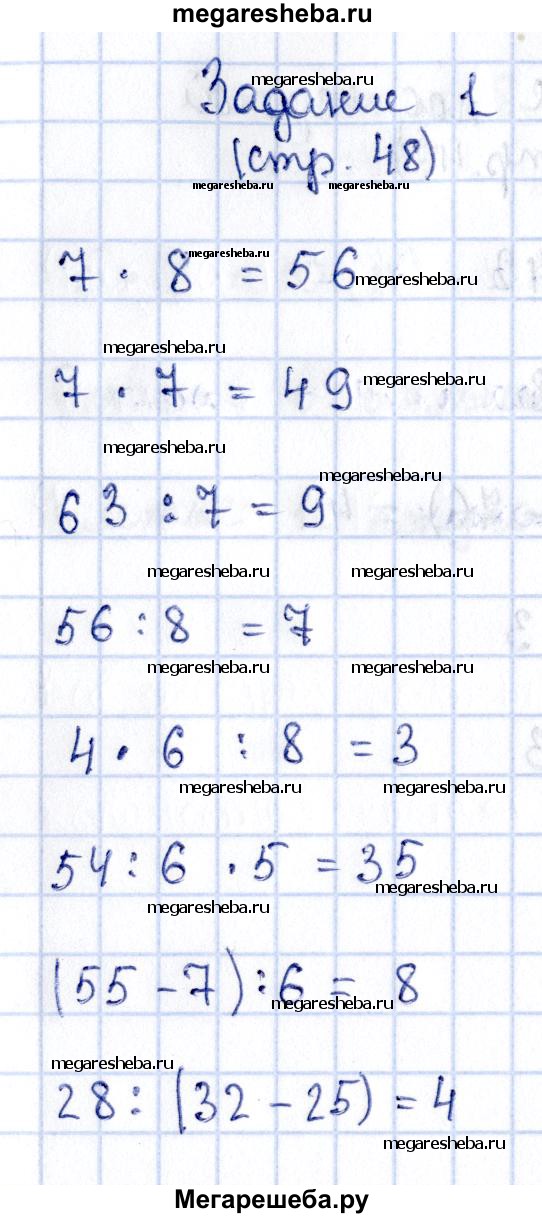 megaresheba.ru
Задание 1
megaresheba.ru
(стр. 48)
megaresheba.ru megaresheba.ru
megaresheba.ru
7 · 8 = 56
megaresheba.ru
megaresheba.ru
7 · 7 = 49
megaresheba.ru
megaresheba.ru
megaresheba.ru
63 : 7 = 9
megaresheba.ru megaresheba.ru
56 : 8 = 7
megaresheba.ru megaresheba.ru
4 · 6 : 8 = 3
megaresheba.ru megaresheba.ru
54 : 6 · 5 = 35
megaresheba.ru
megaresheba.ru
(55 - 7) : 6 = 8
megaresheba.ru
megaresheba.ru
28 : (32 - 25) = 4
megaresheba.ru
Мегарешеба.ру